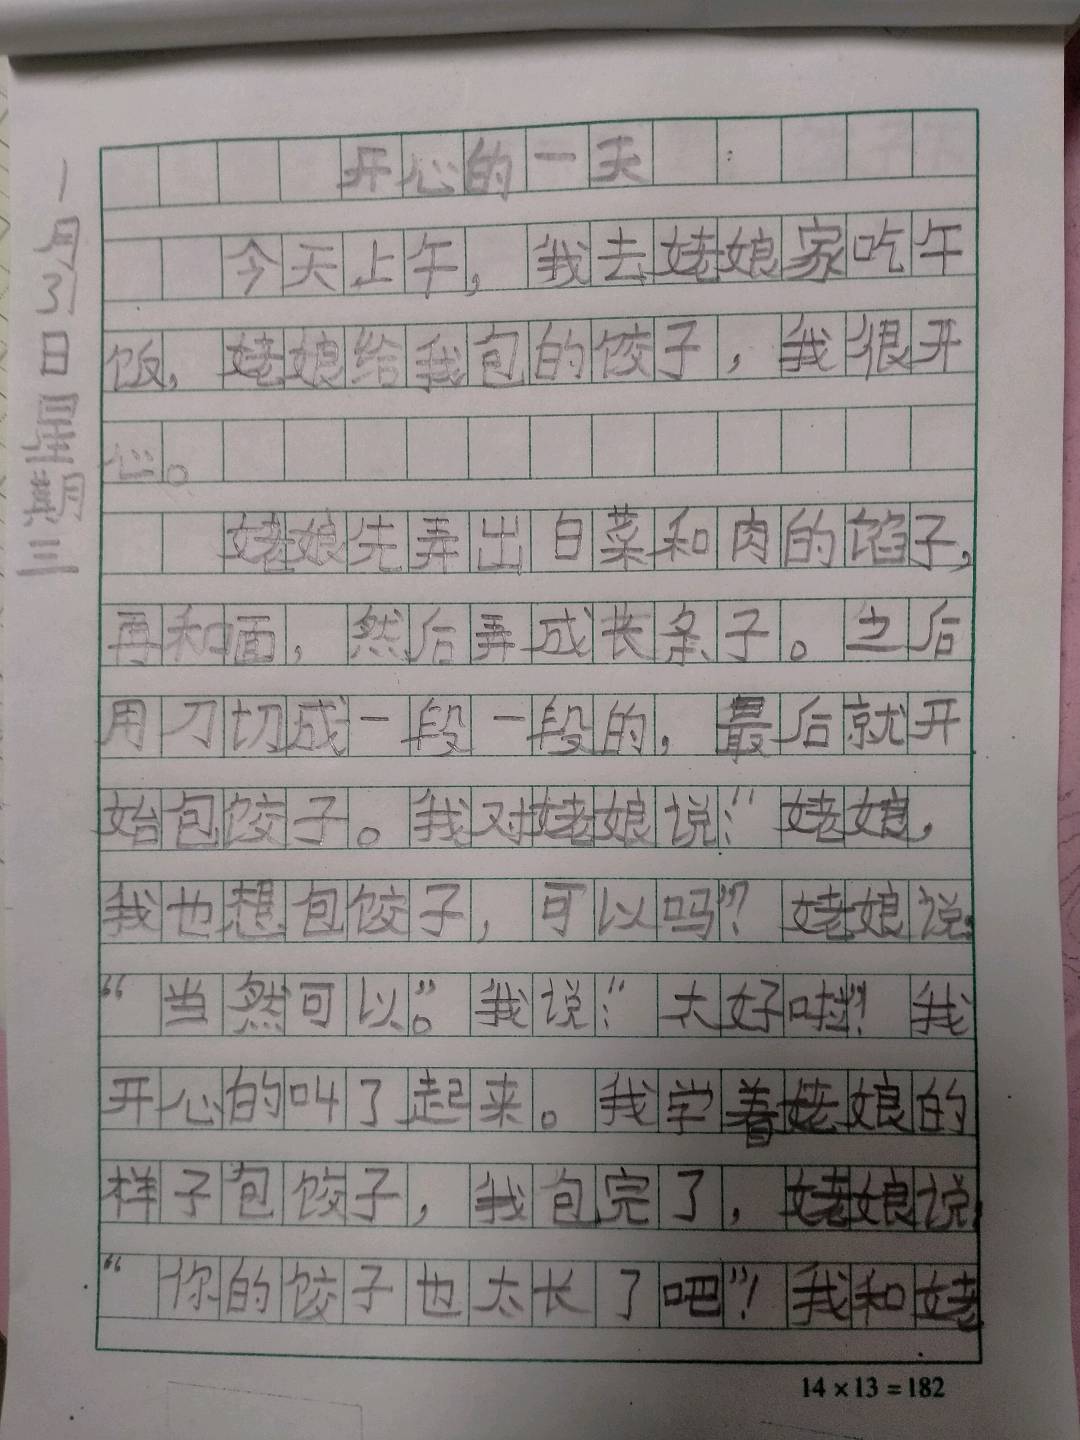 1月31日星期三
开心的一天
今天上午，我去姥娘家吃午
饭，姥娘给我包的饺子，我很开
心。
姥娘先弄出白菜和肉的馅子，
再和面，然后弄成长条子。之后
用刀切成一段一段的，最后就开
始包饺子。我对姥娘说：“姥娘，
我也想包饺子，可以吗”？姥娘说：
“当然可以”。我说：“太好啦”！我
开心的叫了起来。我学着姥娘的
样子包饺子，我包完了，姥娘说：
“你的饺子也太长了吧”！我和姥
14×13=182